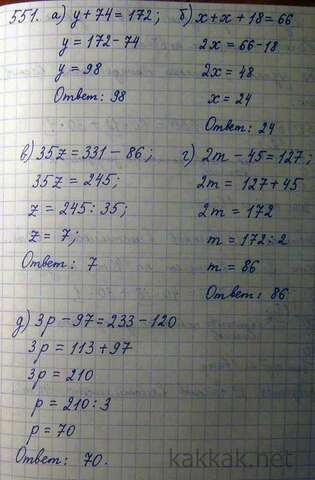 551. а) y + 74 = 172;
y = 172 - 74
y = 98
Ответ: 98
б) x + x + 18 = 66
2x = 66 - 18
2x = 48
x = 24
Ответ: 24
в) 35z = 331 - 86;
35z = 245;
z = 245 : 35;
z = 7;
Ответ: 7
г) 2m - 45 = 127;
2m = 127 + 45
2m = 172
m = 172 : 2
m = 86
Ответ: 86
д) 3p - 97 = 233 - 120
3p = 113 + 97
3p = 210
p = 210 : 3
p = 70
Ответ: 70.
kakkak.net